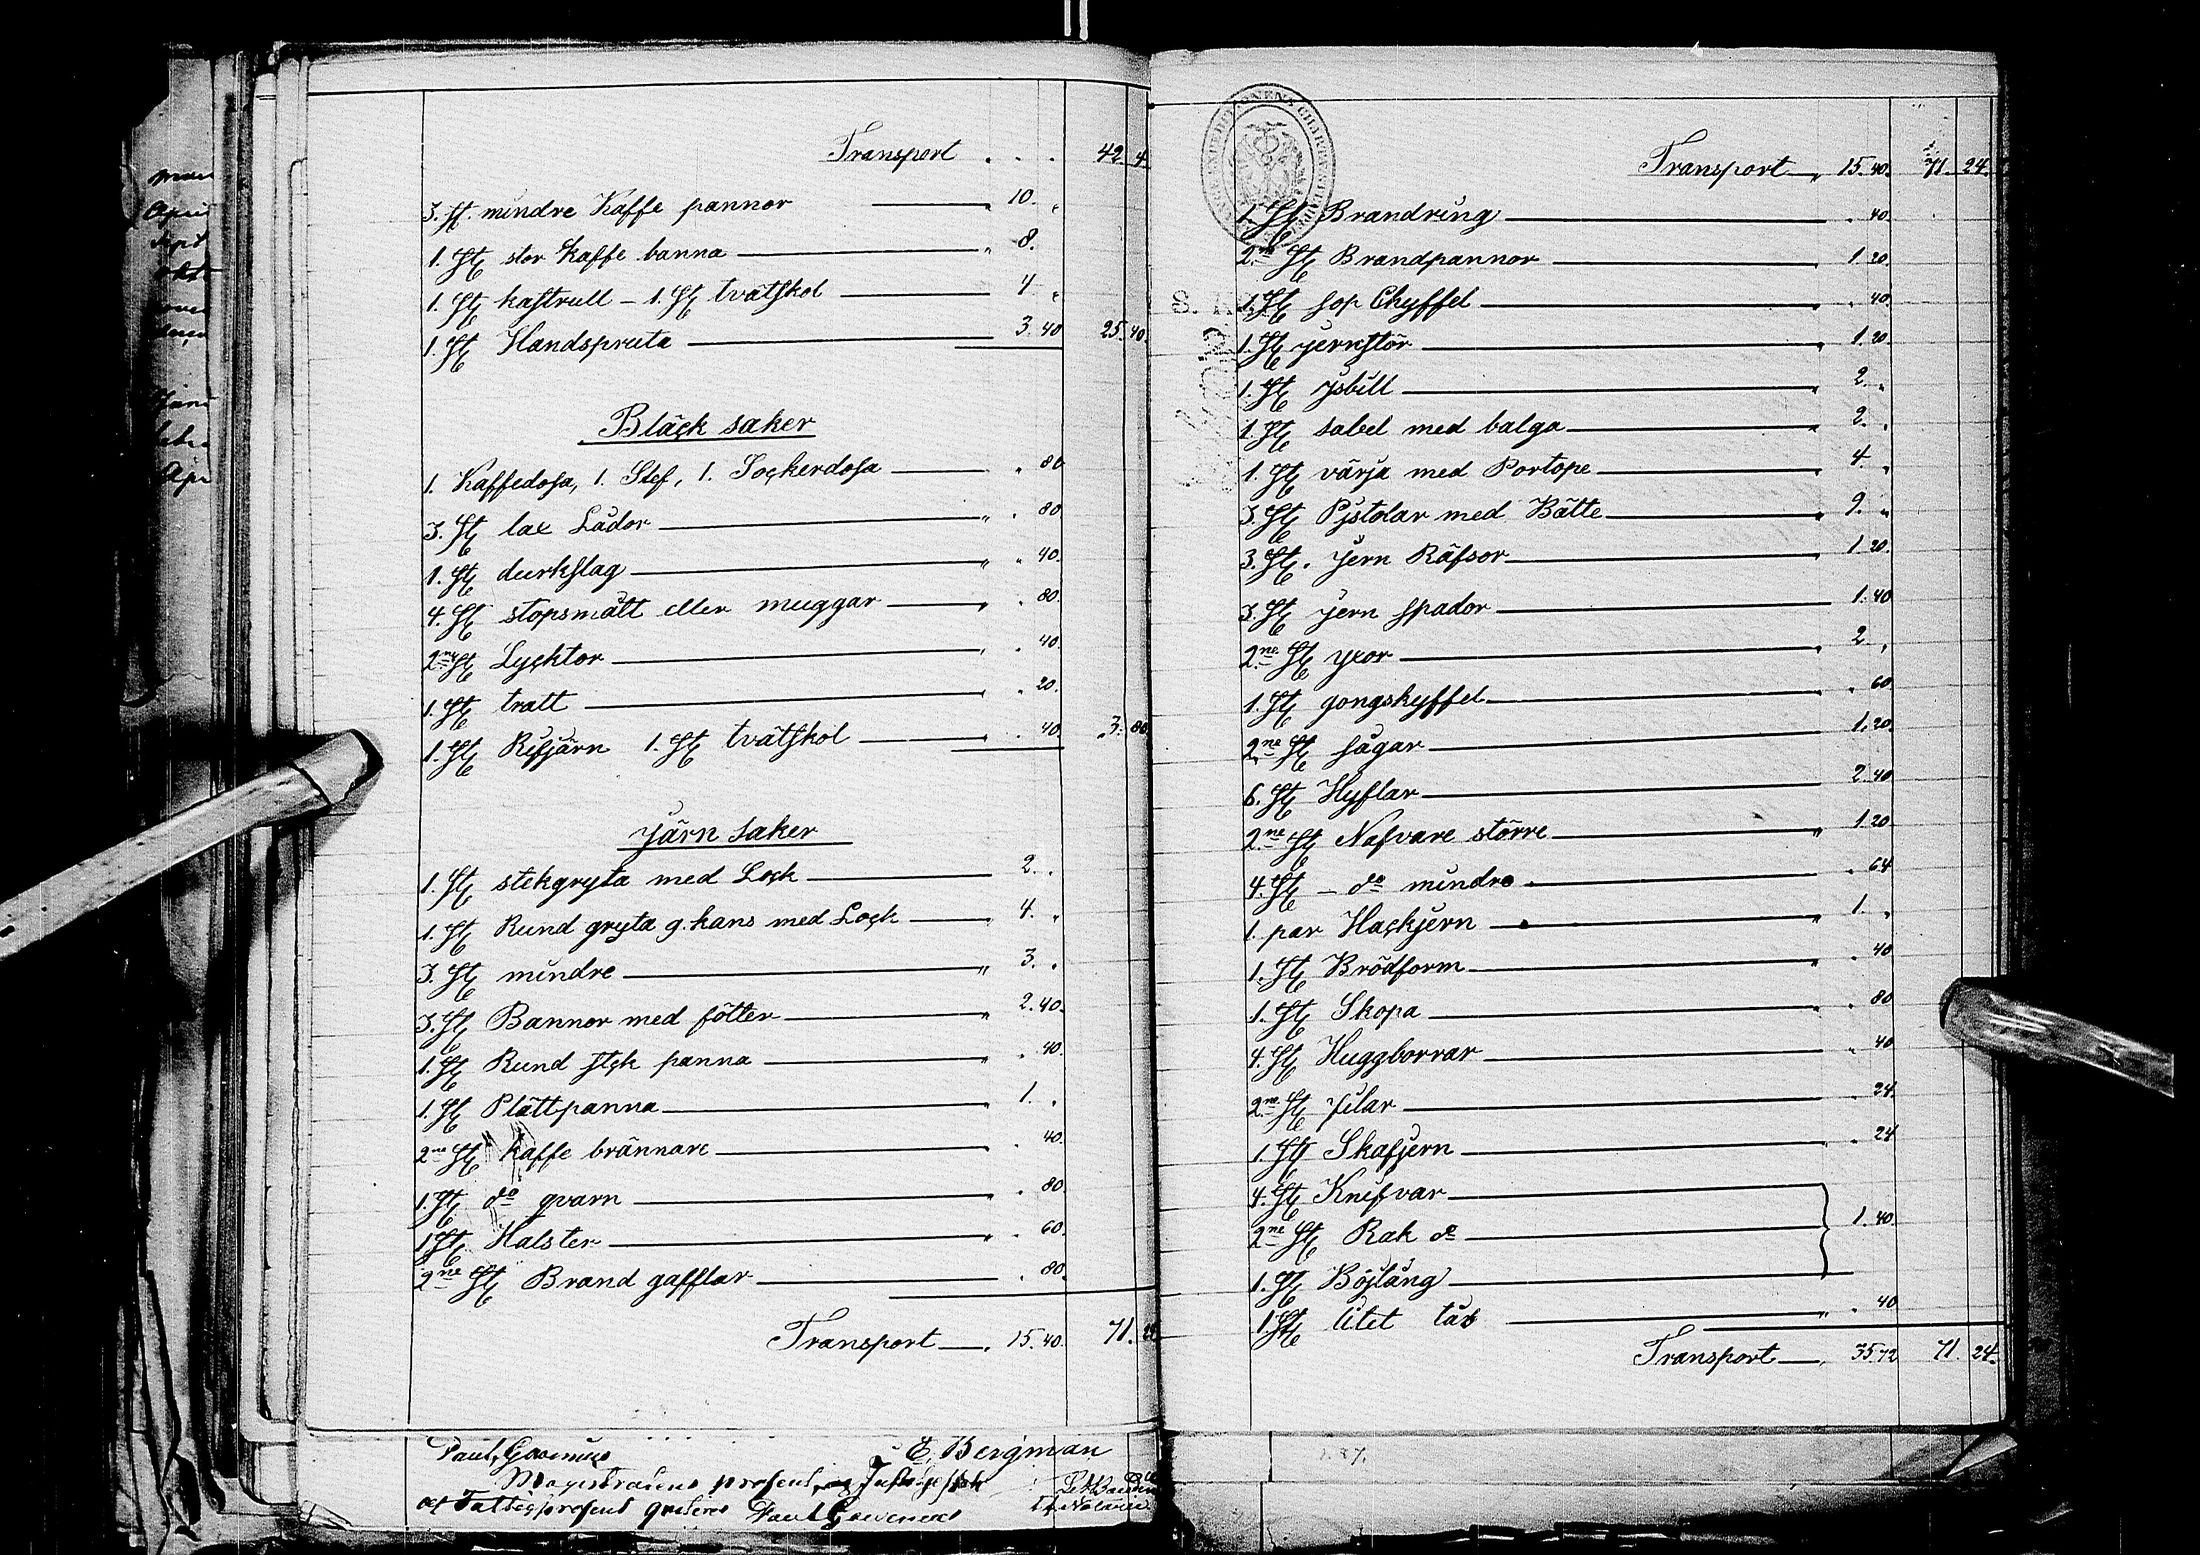 Transport . . . 42. 4
3. St. mindre Kaffe pannor " 10. "
1. St stor Kaffe banna " 8.
1. St kastrull – 1. St tvätskol 4 "
1. St Handspruta 3. 40 25. 40
Bläck saker
1. Kaffedosa, 1. Stef, 1. Sockerdosa " 80
3. St lax Lådor " . 80
1. St durkslag " " 40.
4. St stopsmått eller muggar " . 80.
2ne St Lycktor . 40.
1. St tratt " . 20.
1. St Rifjärn 1. St tvätskol . 40. 3. 80
Järn saker
1. St stekgryta med Lock 2. "
1. St Rund gryta g. hans med Lock " 4. "
3. St mindre " 3. "
3. St Bannor med fötter " 2. 40.
1. St Rund stek panna " . 40.
1. St Plättpanna " 1. "
2ne St kaffe brännare . 40.
1. St do qvarn " . 80.
1 St Halster " . 60
2ne St Brand gafflar . 80.
Transport . 15. 40. 71. 24
E. Bergman
Magistratens
Transport " 15. 40. 71. 24.
1. St Brandring . 40.
2ne St Brandpannor " 1. 20.
1. St sop Chyffel . 40.
1. St jernstör " 1. 20.
1. St ysbill " 2. "
1. St sabel med balga " 2. "
1. St värja med Portope " 4. "
3. St Pystolar med Bätte " 9. "
3. St. Jern Räfsor 1. 20.
3. St jern spador 1. 40
2ne St yxor " 2. "
1. St gongskyffel " . 60
2ne St sågar 1. 20.
6. St Hyflar 2. 40
2ne St Nafvare större " 1. 20
4. St – do mindre . 64
1. par Hackjern " 1. "
1. St Brödform . 40
1. St Skopa " . 80
4. St Huggborrar " 40
2ne St filar . 24.
1. St Skafjern " . 24
4. St Knifvar
2ne St Rak do 1. 40.
1. St Böjtång
1 St litet lås " . 40
Transport " 35. 72 71. 24.